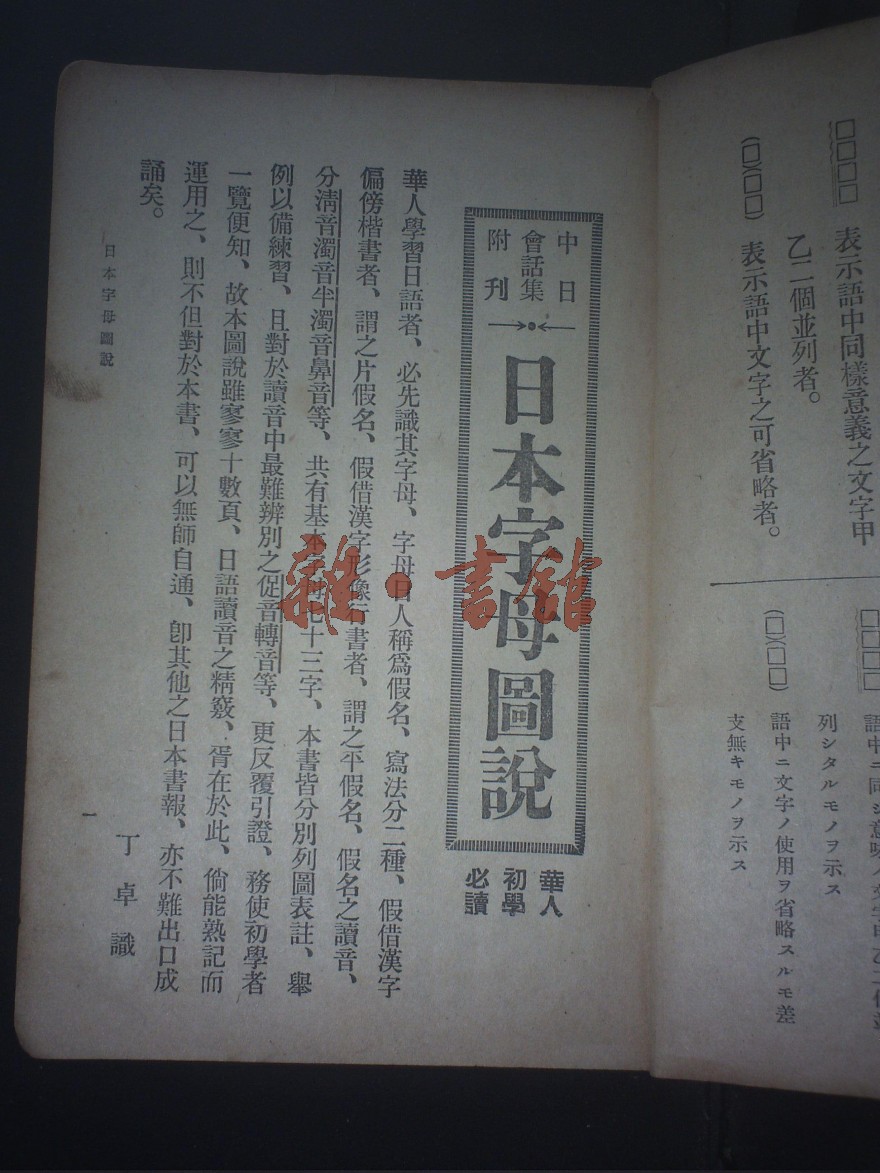 □□□□ 表示語中同樣意義之文字甲
乙二個並列者。
(□)(□□) 表示語中文字之可省略者。
□□□□
列シタルモノヲ示ス
(□)(□□) 語中ニ文字ノ使用ヲ省略スルモ差
支無キモノヲ示ス
中日
會話集
附刊
日本字母圖說
華人
初學
必讀
華人學習日語者、必先識其字母、字母日人稱爲假名、寫法分二種、假借漢字
偏傍楷書者、謂之片假名、假借漢字形像行書者、謂之平假名、假名之讀音、
分淸音濁音半濁音鼻音等、共有基本字母七十三字、本書皆分別列圖表註、舉
例以備練習、且對於讀音中最難辨別之促音轉音等、更反覆引證、務使初學者
一覽便知、故本圖說雖寥寥十數頁、日語讀音之精竅、胥在於此、倘能熟記而
運用之、則不但對於本書、可以無師自通、卽其他之日本書報、亦不難出口成
誦矣。
丁卓識
日本字母圖說
一
雜·書館